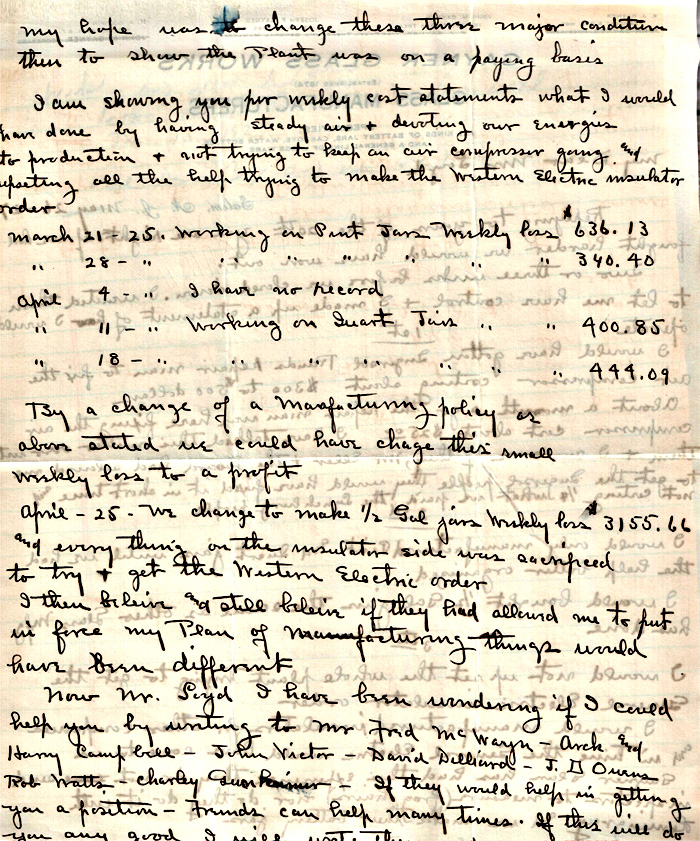 my hope was to change these three major condition
then to show the Plant was on a paying basis
I am showing you per weekly cost statements what I would
have done by having steady air & devoting our energies
to production & not trying to keep an air compressor going. and
upseting all the help trying to make the Western Electric insulator
order.
March 21 - 25. Working on Pint Jars Weekly loss $ 636.13
" 28 - " " " " " " 340.40
April 4 - " I have no record
" 11 - " Working on Quart Jars " " 400.85
" 18 - " " " " " " " 444.09
By a change of a Manfacturing policy as
above stated we could have chage this small
weekly loss to a profit
April - 25 - We change to make 1/2 Gal jars Weekly loss $ 3155.66
and every thing on the insulator side was sacrificed
to try & get the Western Electric order
I then beleiv and still beleiv if they had allowed me to put
in force my Plan of manufacturing things would
have been different
Now Mr. I have been wondering if I could
help you by writing to Mr Fred McWayn - Arch and
Harry Campbell - John Victor - David Dilliard - J. D Owens
Rob Watts - Charley - If they would help in getting
you a position - Friends can help many times. If this will do
you any good I will